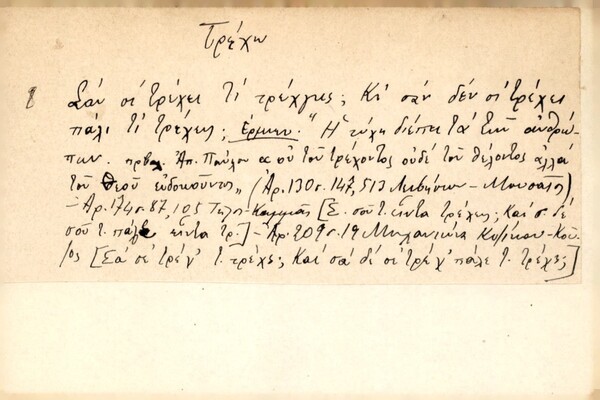 Τρέχω
Σάν σέ τρέχει τί τρέχεις; Κι' σάν δέν σέ τρέχει
πάλι τί τρέχεις; Ερμην. "Ἡ τύχη διέπει τά τῶν ἀνθρώ-
πων. πρβλ. Ἀπ. Παύλου οὐ τοῦ τρέχοντος οὐδέ τοῦ θέλοντος ἀλλά
τοῦ Θεοῦ εὐδοκοῦντος" (Ἀρ. 130 σ. 147, 513
- Ἀρ. 174 σ. 87, 105 [Σ. σοῦ τ. εἶντα τρέχεις; Καί σ δέ
σοῦ τ. πάλε εἶντα τρ.] - Ἀρ. 209 σ. 19 Μηχανιώνα Κυζίκου - Κού-
[Σά σέ τρέχ' τ. τρέχς; Καί σά δέ σέ τρέχ' πάλε τ. τρέχς]